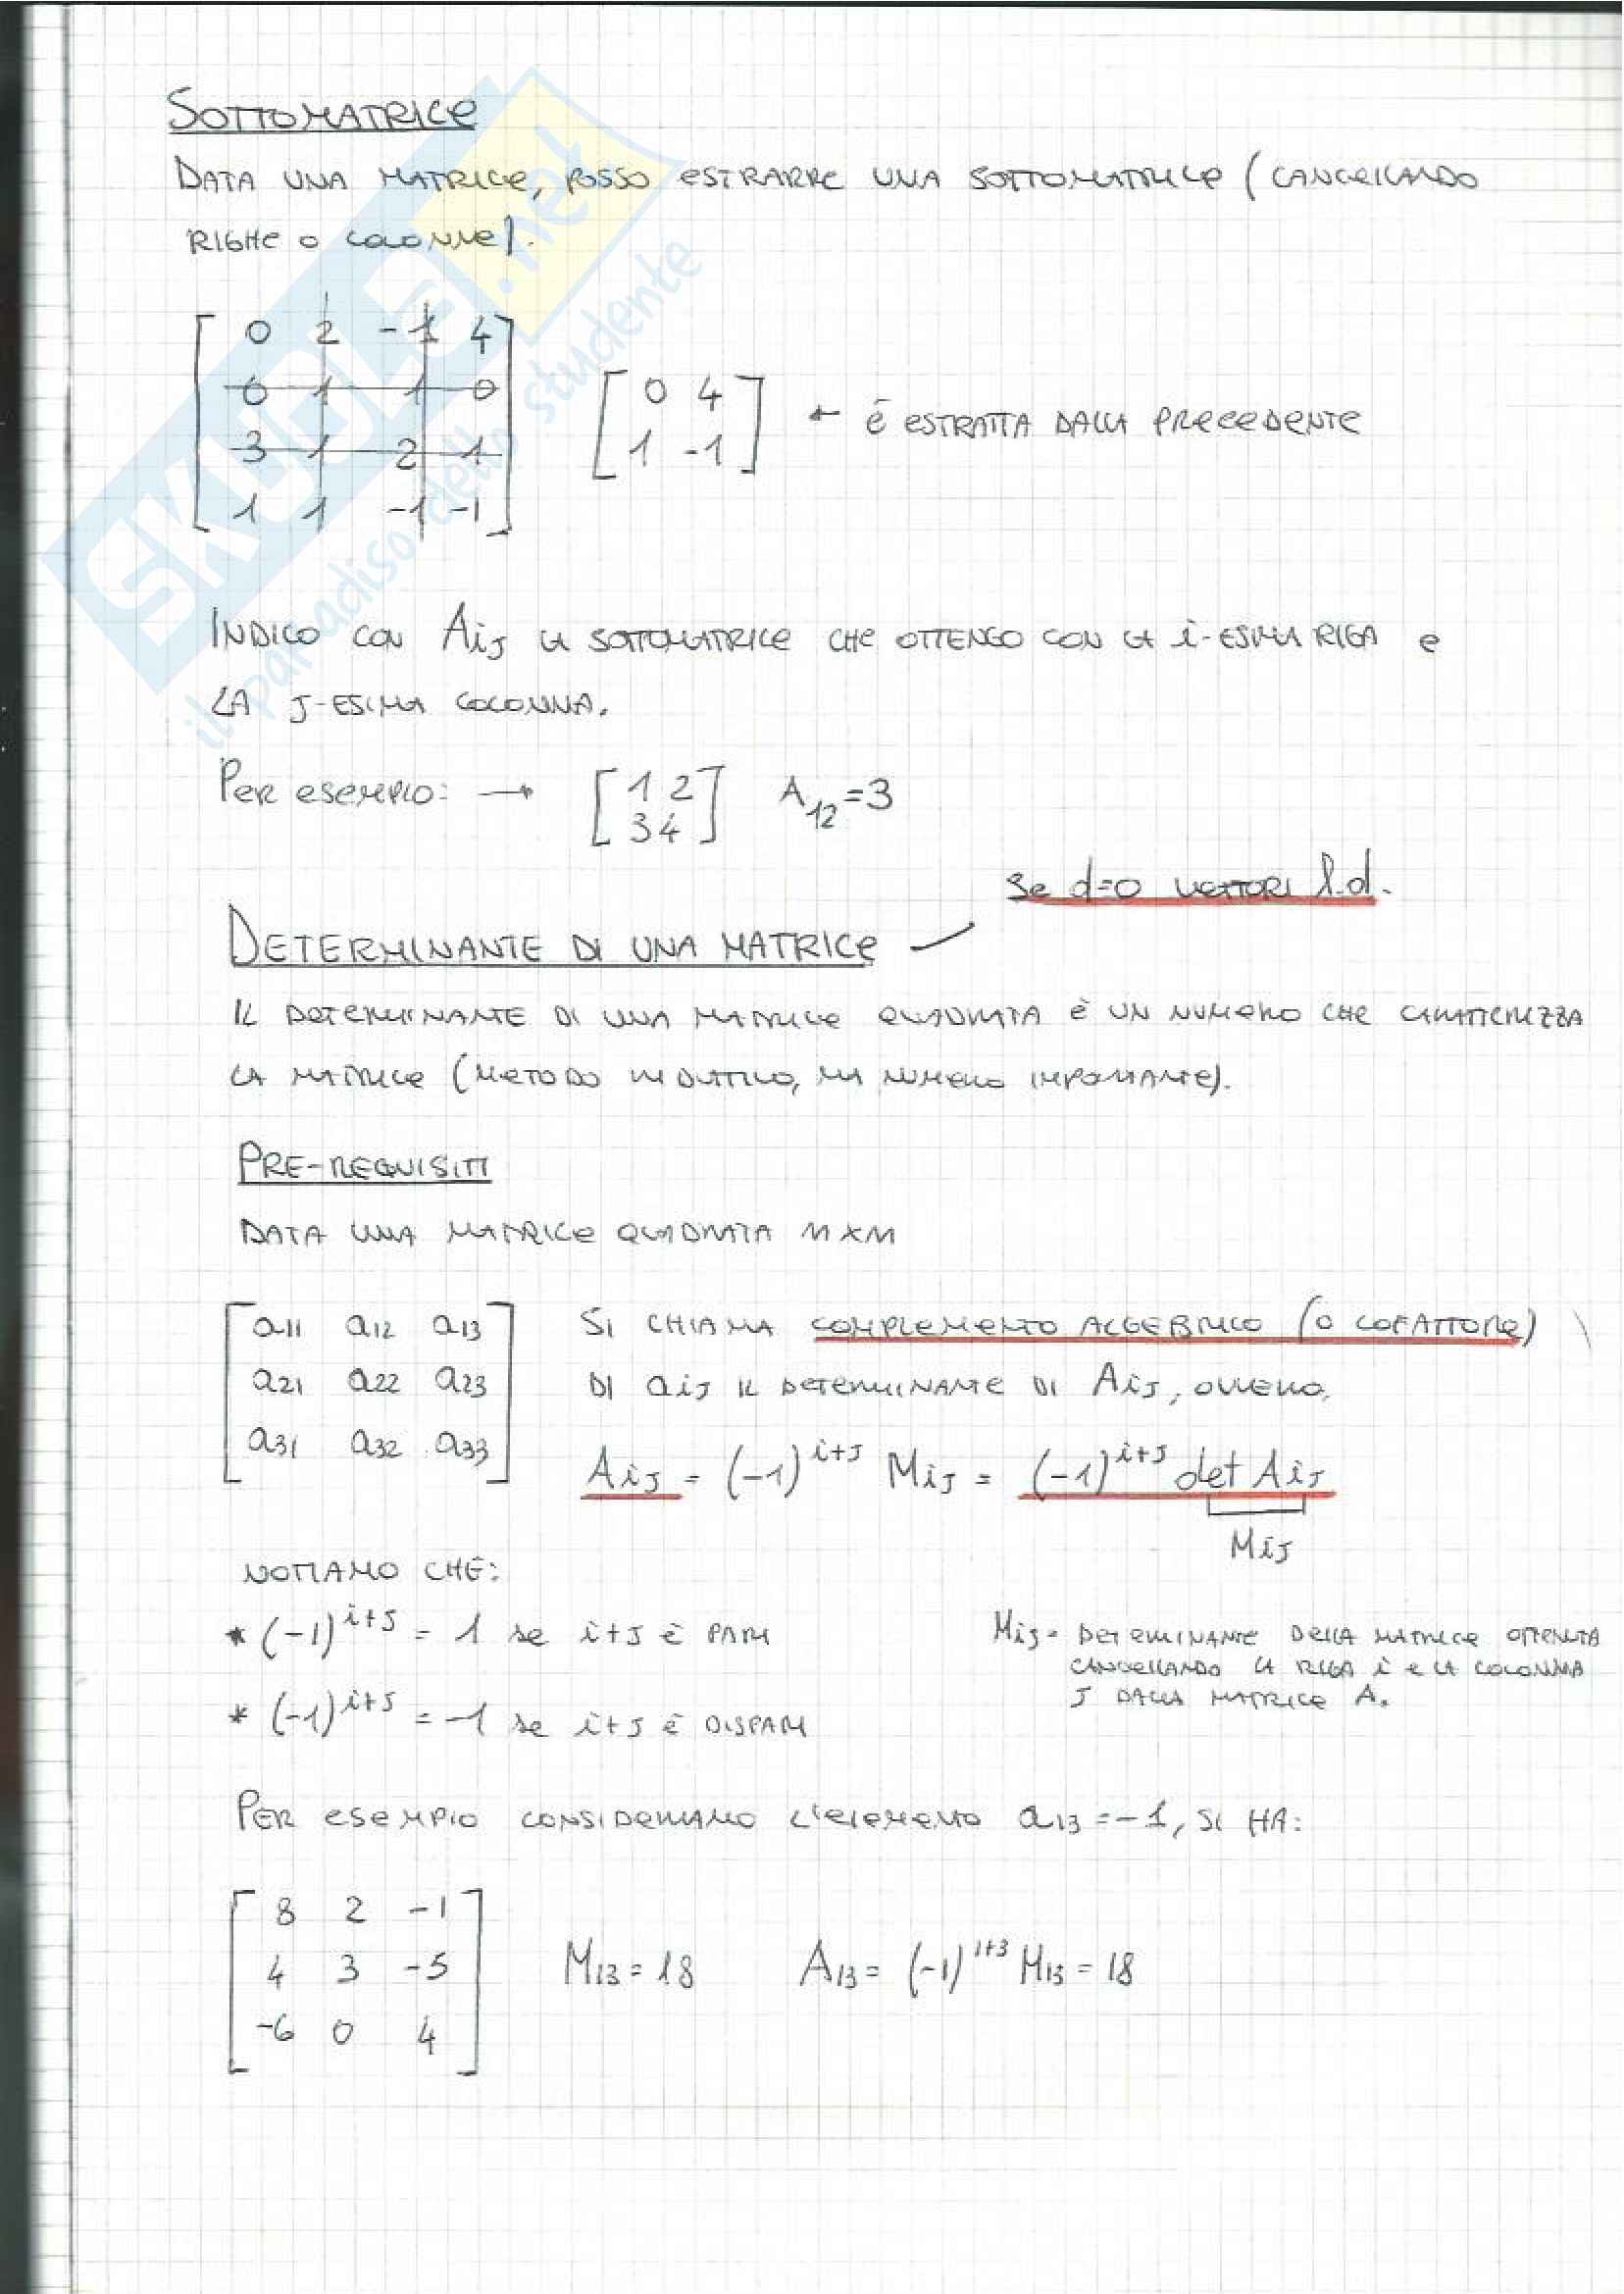 SOTTOMATRICE
DATA UNA MATRICE, POSSO ESTRARRE UNA SOTTOMATRICE (CANCELLANDO
RIGHE O COLONNE).
[ 0 2 -1 4 ]
[ 0 1 1 0 ]
[ 3 1 2 1 ]
[ 1 1 -1 -1 ]
[ 0 4 ]
[ 1 -1 ]
← È ESTRATTA DALLA PRECEDENTE
INDICO CON Aij LA SOTTOMATRICE CHE OTTENGO CON LA i-ESIMA RIGA e
LA J-ESIMA COLONNA.
Per esempio: → [ 1 2 ] A12=3
[ 3 4 ]
Se d=0 VETTORI l.d.
DETERMINANTE DI UNA MATRICE
IL DETERMINANTE DI UNA MATRICE QUADRATA È UN NUMERO CHE CARATTERIZZA
LA MATRICE (METODO INDUTTIVO, MA NUMERO IMPORTANTE).
PRE-REQUISITI
DATA UNA MATRICE QUADRATA n x n
[ a11 a12 a13 ]
[ a21 a22 a23 ]
[ a31 a32 a33 ]
SI CHIAMA COMPLEMENTO ALGEBRICO (O COFATTORE)
DI aij IL DETERMINANTE DI Aij, OVVERO,
Aij = (-1)^i+j Mij = (-1)^i+j det Aij
Mij
NOTIAMO CHE:
* (-1)^i+j = 1 se i+j è PARI
* (-1)^i+j = -1 se i+j è DISPARI
Mij = DETERMINANTE DELLA MATRICE OTTENUTA
CANCELLANDO LA RIGA i E LA COLONNA
J DALLA MATRICE A.
PER ESEMPIO CONSIDERIAMO L'ELEMENTO a13 = -1, SI HA:
[ 8 2 -1 ]
[ 4 3 -5 ]
[ -6 0 4 ]
M13 = 18 A13 = (-1)^1+3 M13 = 18
SKUOLA.net
il paradiso dello studente